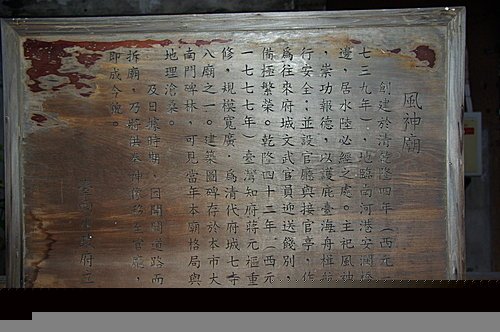 風神廟
創建於清乾隆四年(西元一
七三九年),地臨南河港安瀾橋
邊,居水陸必經之處。主祀風神
,崇功報德,以護庇臺海舟楫航
行安全;並設官廳與接官亭,作
為往來府城文武官員迎送餞別,
備極繁榮。乾隆四十二年(西元
一七七七年)臺灣知府蔣元樞重
修,規模寬廣,為清代府城七寺
八廟之一。建築圖碑存於本市大
南門碑林,可見當年本廟格局與
地理滄桑。
及日據時期,因開闢道路而
拆廟,乃將洪奉神像移至官廳,
即成今像。
臺南市政府立